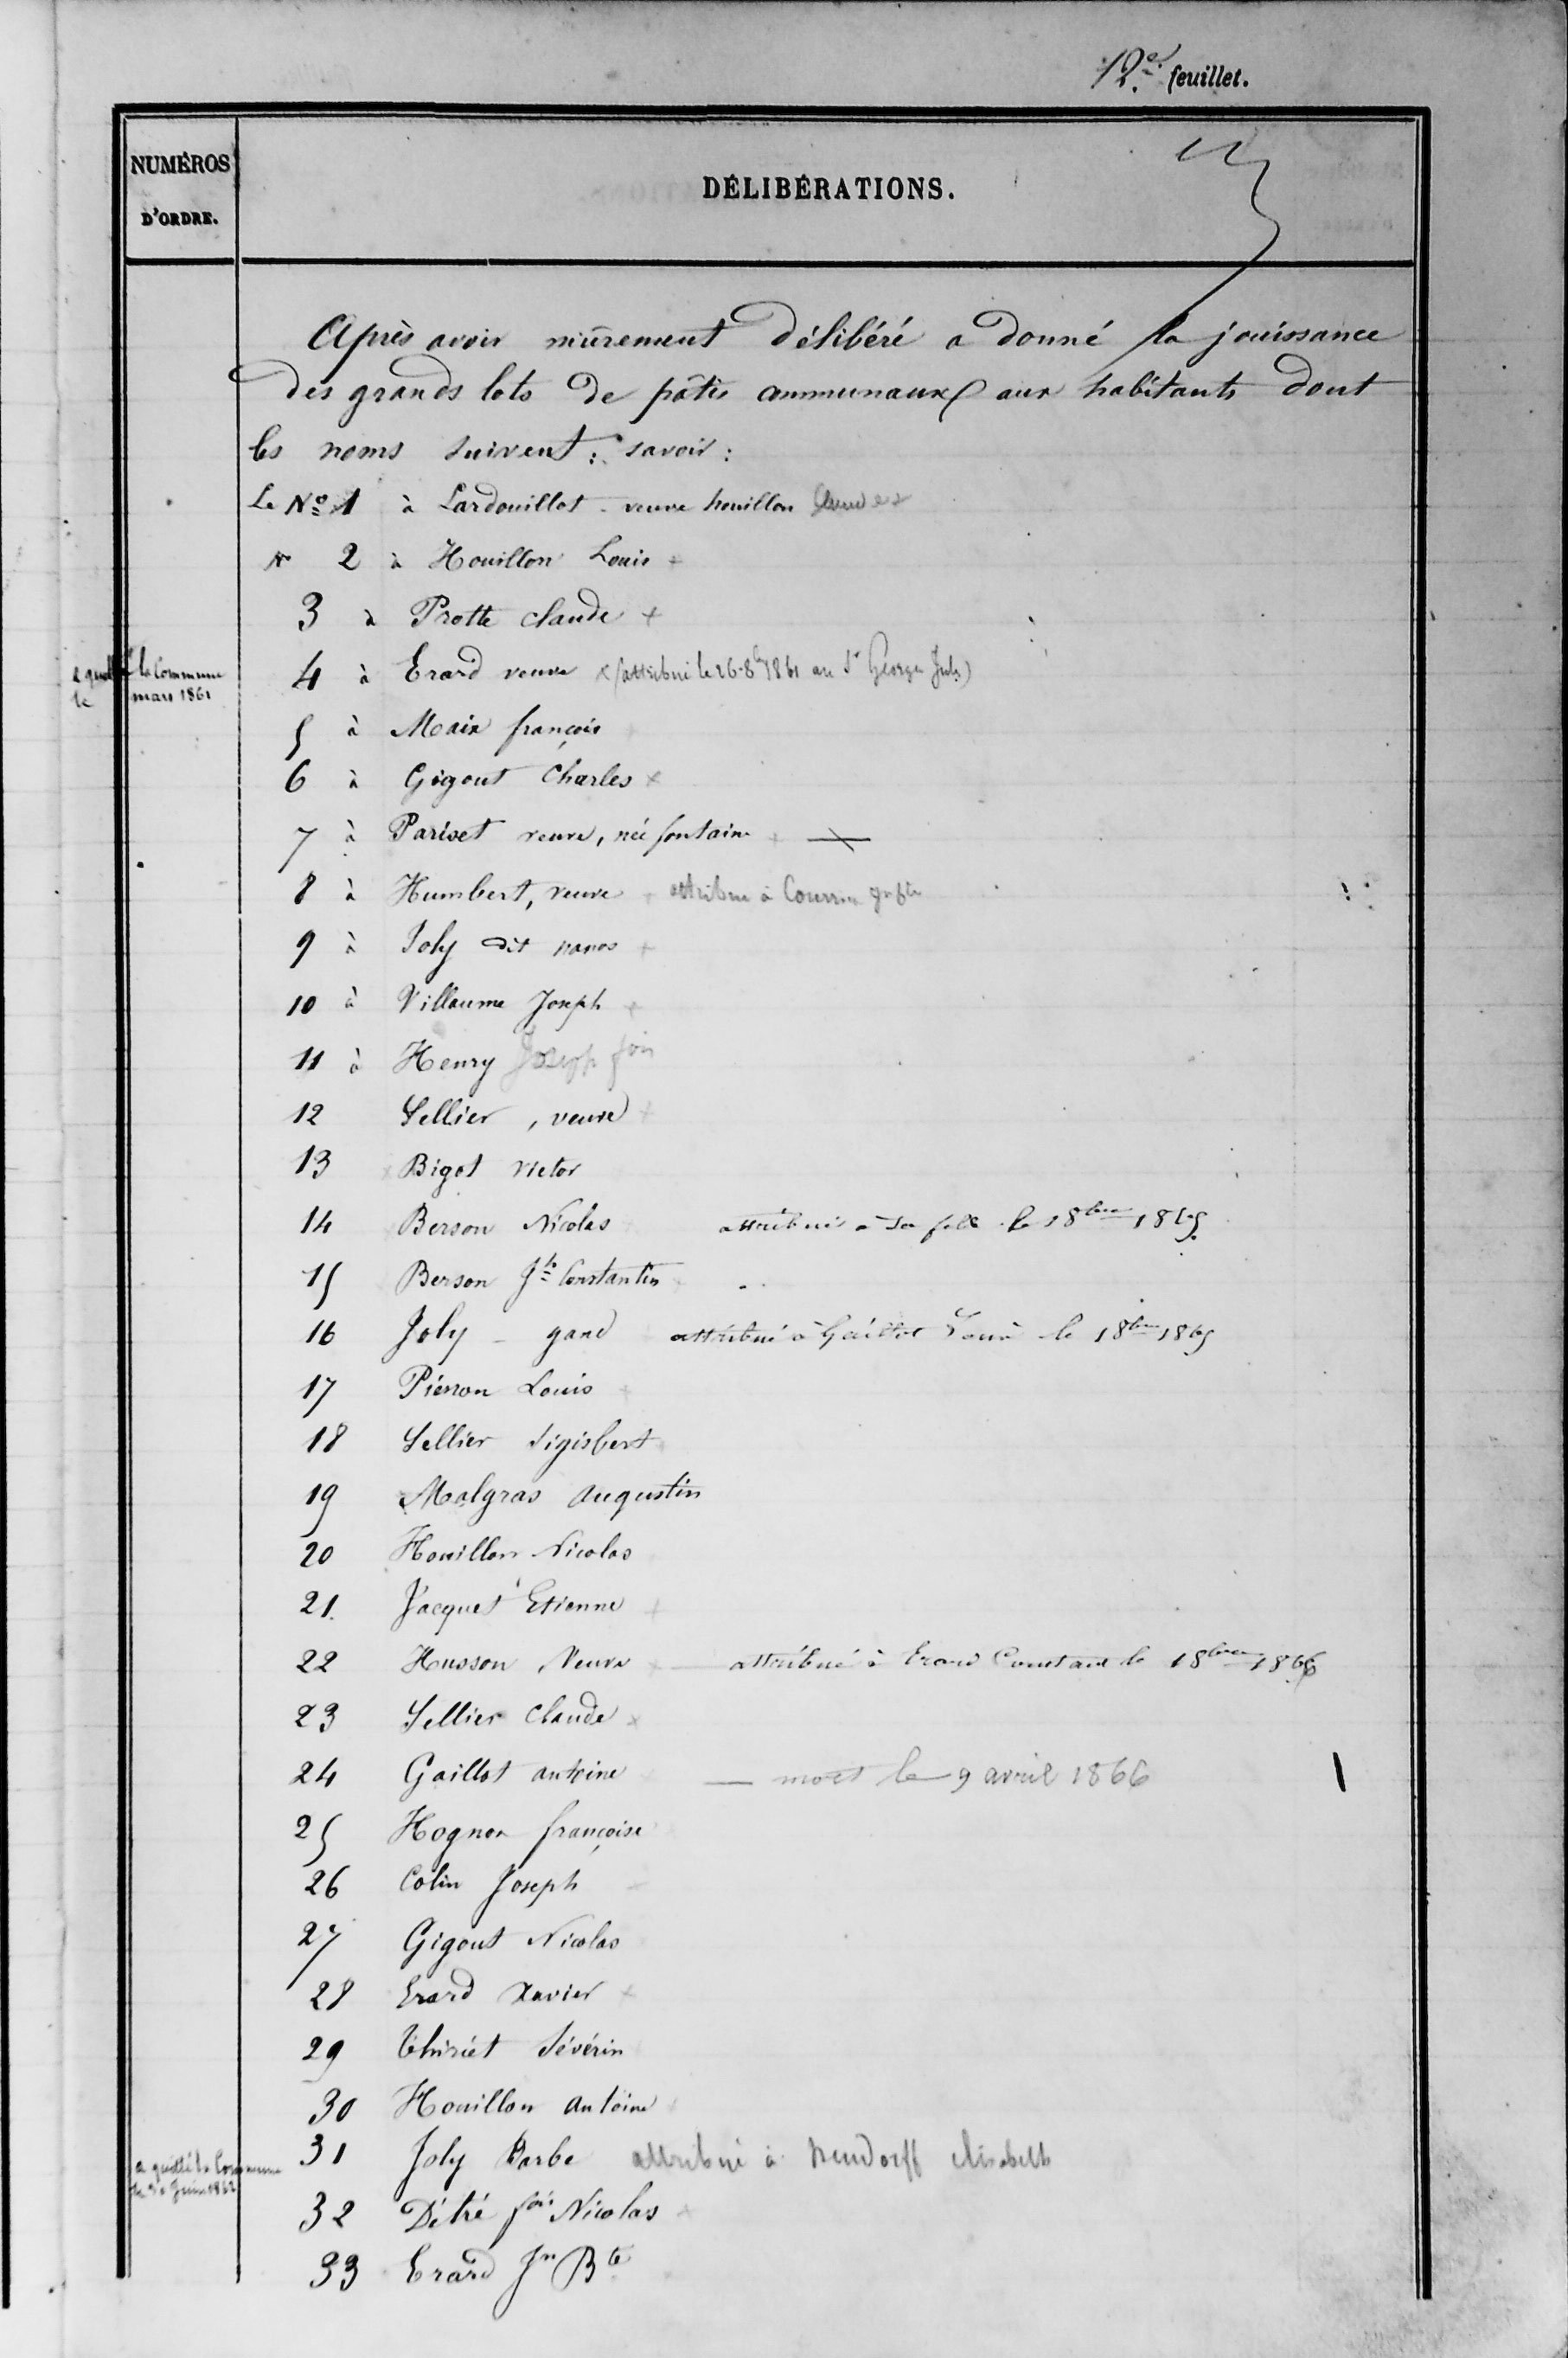 12e. feuillet.
NUMÉROS
D'ORDRE.
DÉLIBÉRATIONS.
Après avoir mûrement délibéré a donné la jouissance
des grands lots de pâtis communaux aux habitants dont
les noms suivent : savoir :
Le No 1 à Lardouillot - veuve houillon
N 2 à Houillon Louis +
3 à Protte claude +
a quitté la Commune
le mars 1861
4 à Erard veuve x (attribué le 26 8bre 1861 au Sr George Jules)
5 à Maix françois
6 à Gigout Charles x
7 à Pariset veuve, née fontaine
8 à Humbert, veuve attribué à
9 à Joly dit nanos +
10 à Villaume Joseph +
11 à Henry Joseph fois
12 Sellier, veuve +
13 Bigot victor
14 Berson Nicolas attribué à sa fille le 1 8bre 1865
15 Berson Jh Constantin
16 Joly - gand attribué à Gaillot Louis le 1 8bre 1865
17 Pierron Louis +
18 Sellier Sigisbert
19 Malgras Augustin
20 Houillon Nicolas
21 Jacquet Etienne +
22 Husson, Veuve attribué à Erard Constant le 1 8bre 1866
23 Sellier Claude x
24 Gaillot antoine — mort le 9 avril 1866
25 Hognon françoise
26 Colin Joseph
27 Gigout Nicolas
28 Erard Xavier +
29 Thiriét Sévérin
30 Houillon Antoine
a quitté la Commune
le Juin 1862
31 Joly Barbe attribué à Neudorff elisabeth
32 Détré fois Nicolas
33 Erard Jn Bte